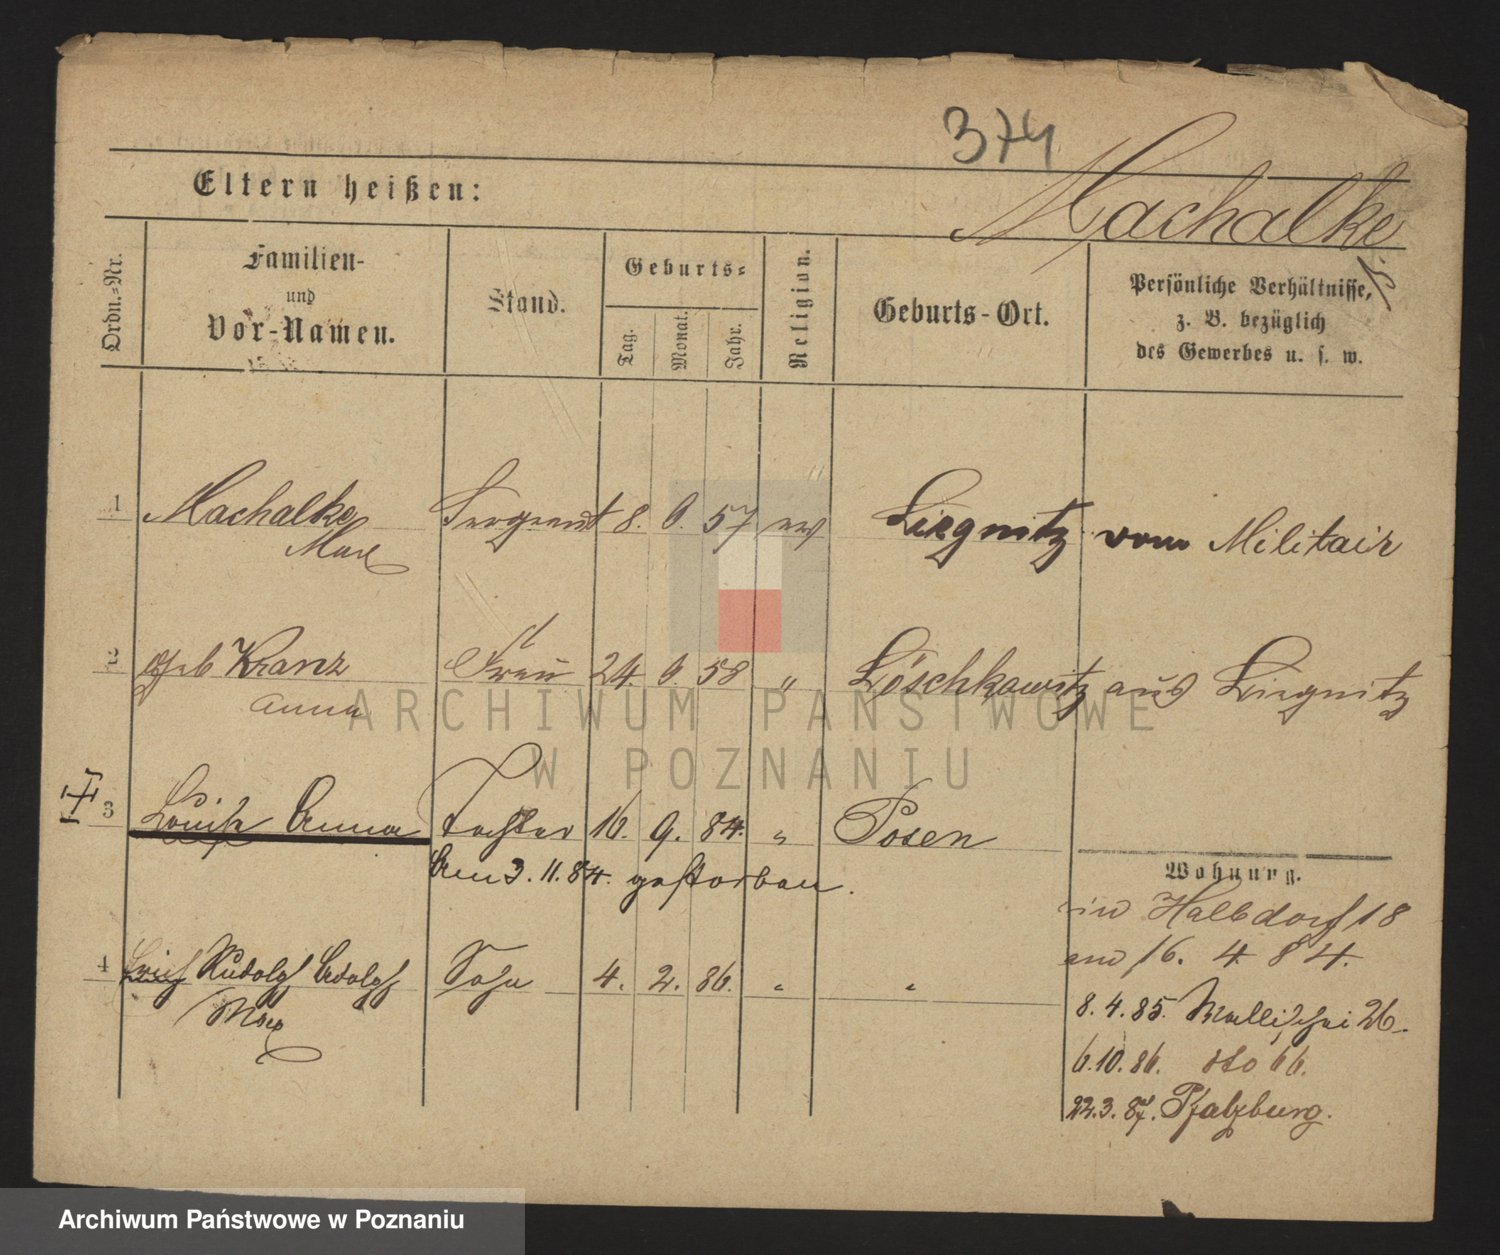 374
Eltern heißen:
Machalke
Ordn.-Nr.
Familien-
und
Vor-Namen.
Stand.
Geburts-
Tag.
Monat.
Jahr.
Religion.
Geburts-Ort.
Persönliche Verhältnisse,
z. B. bezüglich
des Gewerbes u. s. w.
1 Machalke Sergeant 8. 6. 57 ev Liegnitz vom Militair
Max
2 geb Kranz Frau 24. 6. 58 " Löschkowitz aus Liegnitz
Anna
3 Louise Anna Tochter 16. 9. 84. " Posen
Am 3. 11. 84. gestorben.
4 Erich Rudolph Adolph Sohn 4. 2. 86. " "
Max
Wohnung.
Halbdorf 18
16. 4. 84.
8. 4. 85. Wallischei 26.
6. 10. 86. dto 66.
22. 3. 87. Pfalzburg.
ARCHIWUM PAŃSTWOWE
W POZNANIU
Archiwum Państwowe w Poznaniu